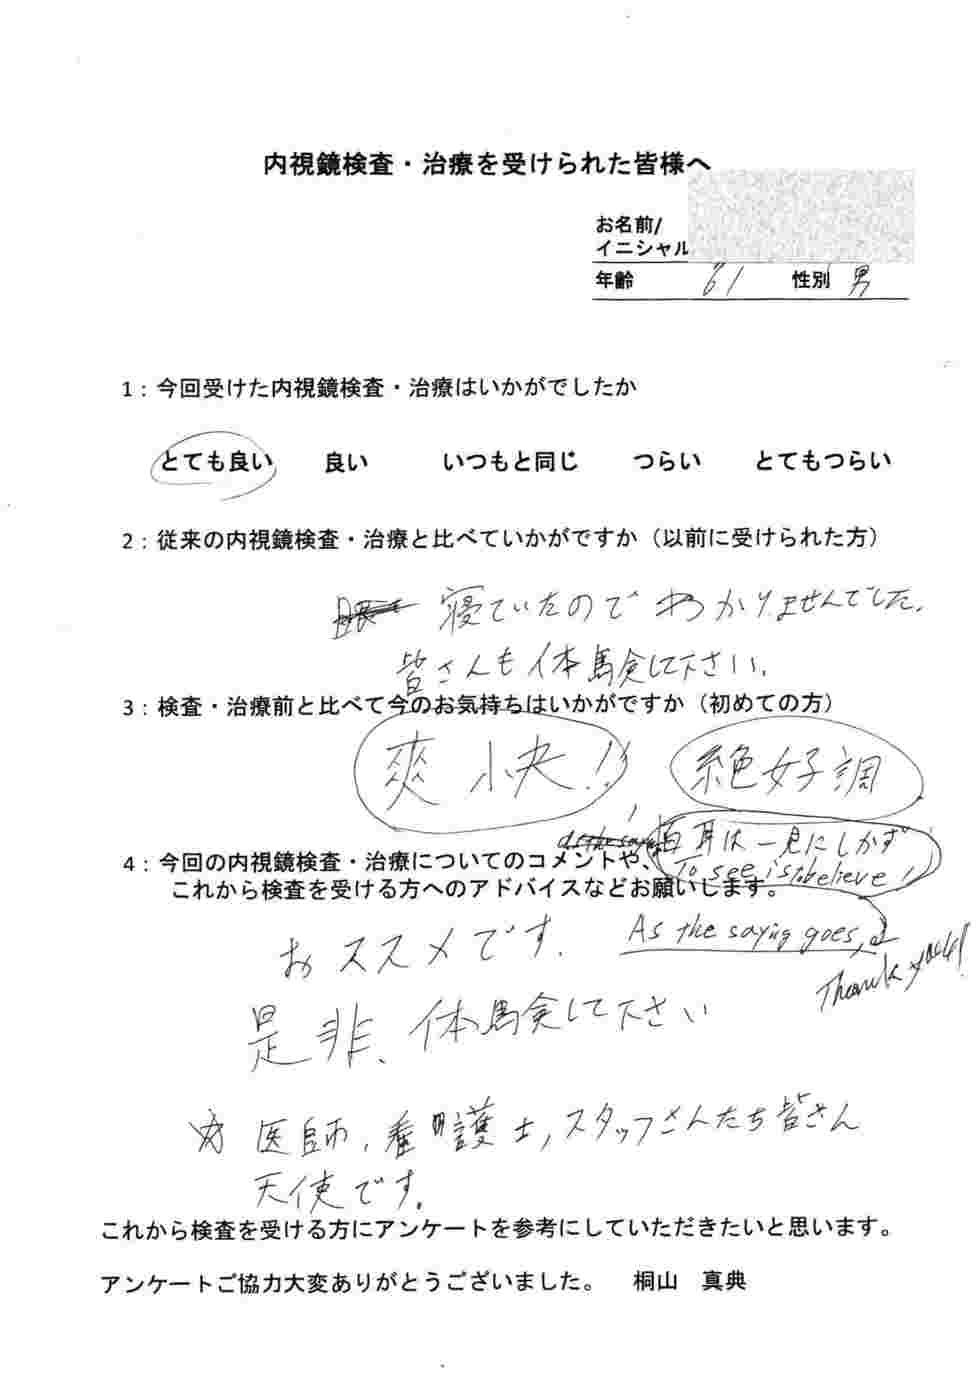 内視鏡検査・治療を受けられた皆様へ
お名前/
イニシャル
年齢 61 性別 男
1：今回受けた内視鏡検査・治療はいかがでしたか
とても良い 良い いつもと同じ つらい とてもつらい
2：従来の内視鏡検査・治療と比べていかがですか（以前に受けられた方）
寝ていたのでわかりませんでした。
皆さんも体験して下さい。
3：検査・治療前と比べて今のお気持ちはいかがですか（初めての方）
爽快!! 絶好調
百耳は一見にしかず
To see is to believe!
4：今回の内視鏡検査・治療についてのコメントや、
これから検査を受ける方へのアドバイスなどお願いします。
おススメです. As the saying goes,
Thank you!!
是非、体験して下さい
☆ 医師, 看護士, スタッフさんたち皆さん
天使です.
これから検査を受ける方にアンケートを参考にしていただきたいと思います。
アンケートご協力大変ありがとうございました。 桐山 真典